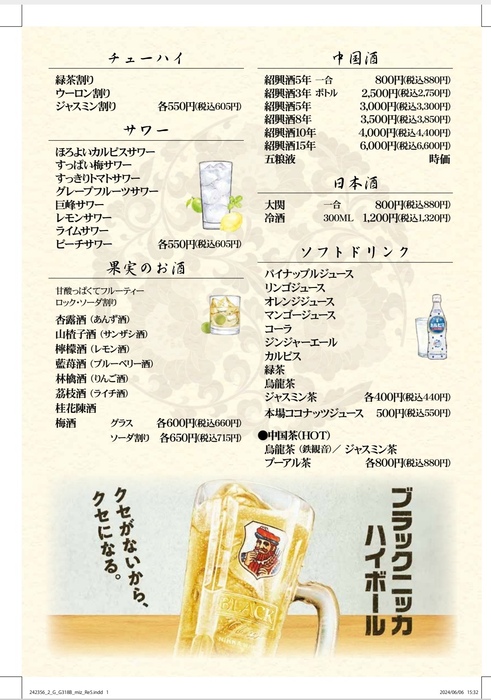 チューハイ
緑茶割り
ウーロン割り
ジャスミン割り 各550円(税込605円)
サワー
ほろよいカルピスサワー
すっぱい梅サワー
すっきりトマトサワー
グレープフルーツサワー
巨峰サワー
レモンサワー
ライムサワー
ピーチサワー 各550円(税込605円)
果実のお酒
甘酸っぱくてフルーティー
ロック・ソーダ割り
杏露酒(あんず酒)
山楂子酒(サンザシ酒)
檸檬酒(レモン酒)
藍苺酒(ブルーベリー酒)
林檎酒(りんご酒)
茘枝酒(ライチ酒)
桂花陳酒
梅酒 グラス 各600円(税込660円)
ソーダ割り 各650円(税込715円)
中国酒
紹興酒5年 一合 800円(税込880円)
紹興酒3年 ボトル 2,500円(税込2,750円)
紹興酒5年 3,000円(税込3,300円)
紹興酒8年 3,500円(税込3,850円)
紹興酒10年 4,000円(税込4,400円)
紹興酒15年 6,000円(税込6,600円)
五粮液 時価
日本酒
大関 一合 800円(税込880円)
冷酒 300ML 1,200円(税込1,320円)
ソフトドリンク
パイナップルジュース
リンゴジュース
オレンジジュース
マンゴージュース
コーラ
ジンジャーエール
カルピス
緑茶
烏龍茶
ジャスミン茶 各400円(税込440円)
本場ココナッツジュース 500円(税込550円)
●中国茶(HOT)
烏龍茶(鉄観音)／ジャスミン茶
プーアル茶 各800円(税込880円)
ブラックニッカ
ハイボール
クセがないから、
クセになる。
BLACK
242356_2_G_G318B_miz_Re5.indd 1
2024/06/06 15:32